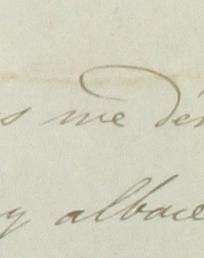 s me dér
y albace